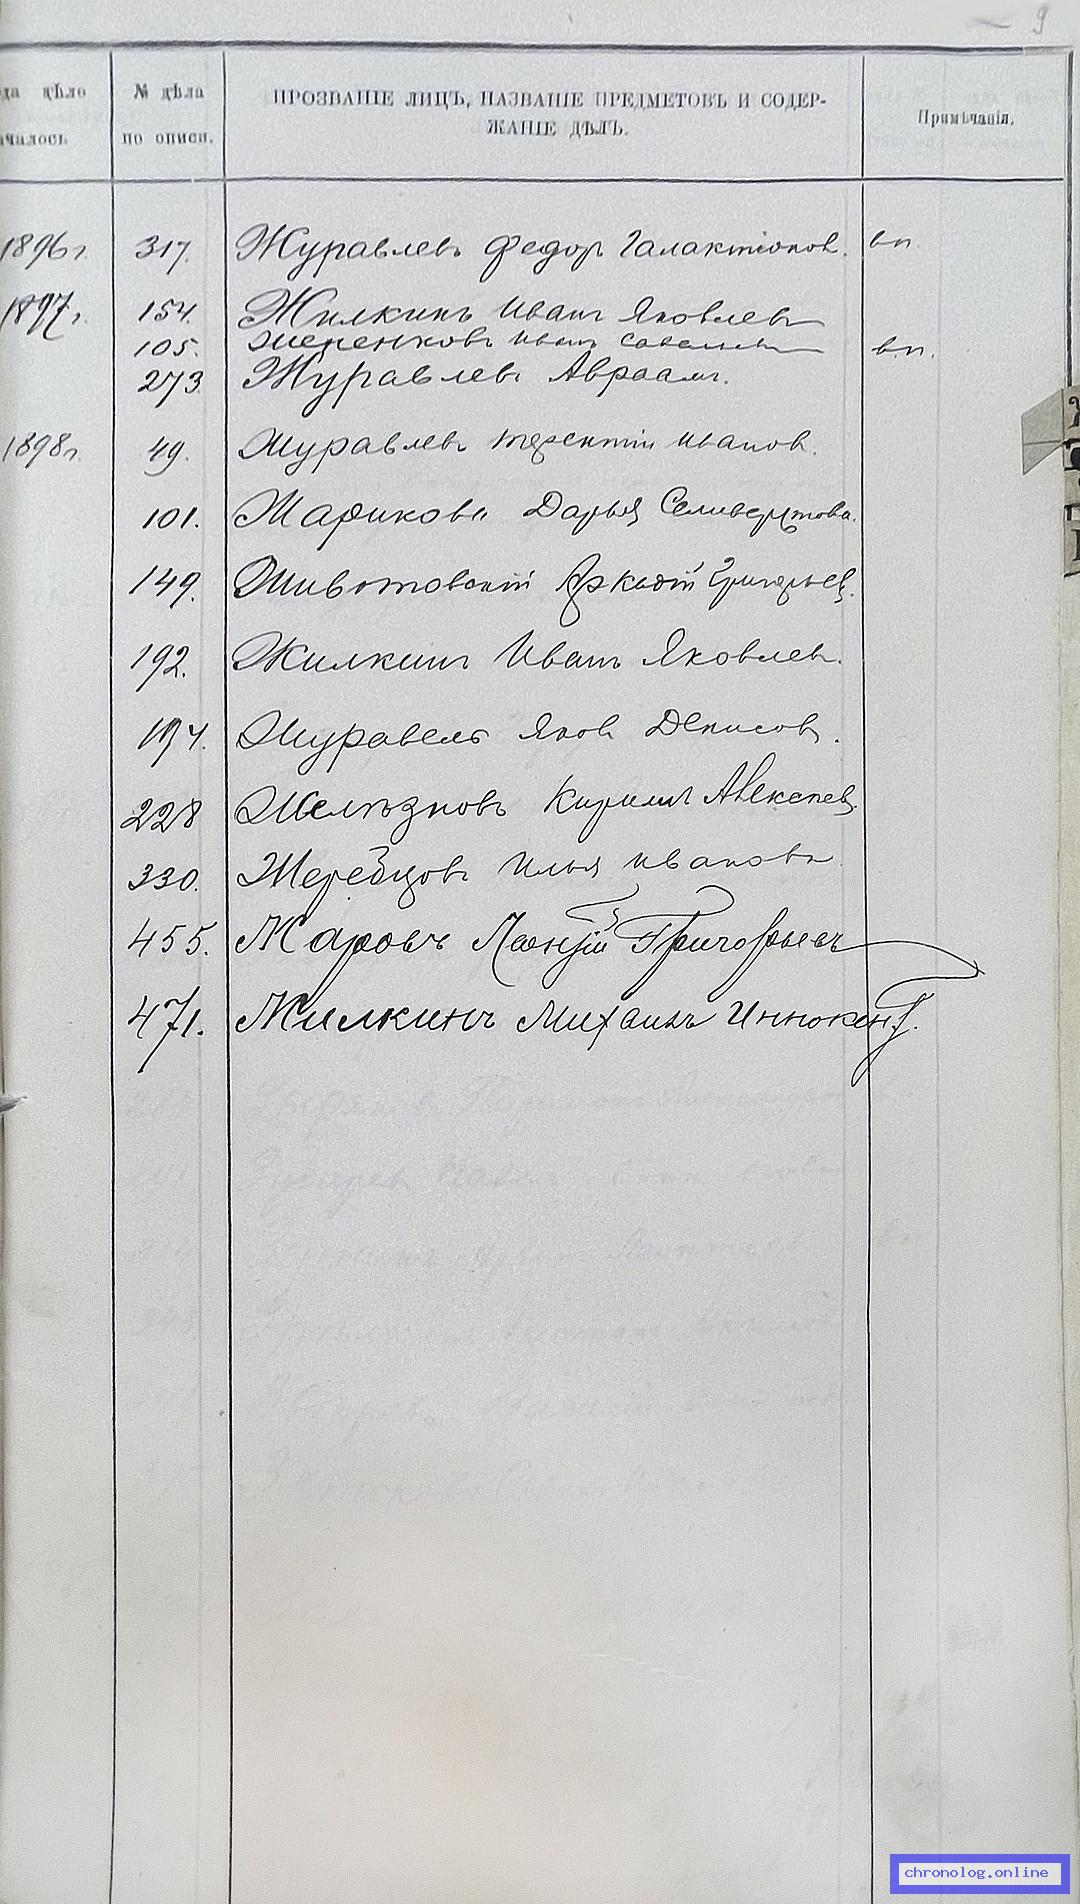 9
да дѣло
чалось
№ дѣла
по описи.
ПРОЗВАНІЕ ЛИЦЪ, НАЗВАНІЕ ПРЕДМЕТОВЪ И СОДЕР-
ЖАНІЕ ДѢЛЪ.
Примѣчанія.
1896 г. 317. Журавлевъ Федоръ Галактіонов. вп.
1897 г. 154. Жилкинъ Иванъ Яковлевъ
105. Жеренковъ Иванъ Савельевъ вп.
273 Журавлевъ Авраамъ.
1898 г. 49. Журавлевъ Терентій Иванов.
101. Жарикова Дарья Селиверстова.
149. Животовскій Аркадій Григорьев.
192. Жилкинъ Иванъ Яковлев.
194. Журавель Яков Денисов.
228 Желѣзновъ Кирилл Алексѣев.
330. Жеребцовъ Илья Ивановъ
455. Жаровъ Григорьевъ
471. Жилкинъ Михаилъ Иннокент.
chronolog.online